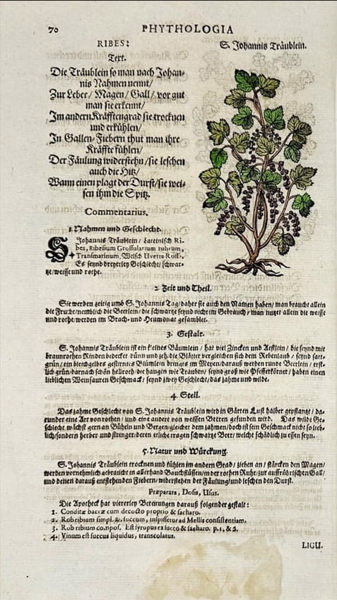 70
PHYTHOLOGIA
RIBES:
S. Johannis Träublein.
Text.
Die Träublein so man nach Johan-
nis Nahmen nennt/
Zur Leber/ Magen/ Gall/ vor gut
man sie erkennt/
Im andern Kräfftengrad sie trocknen
und erkühlen/
In Gallen-Fiebern thut man ihre
Kräffte fühlen/
Der Fäulung widerstehn/ sie leschen
auch die Hitz/
Wann einen plagt der Durst/ sie wei-
sen ihm die Spitz.
Commentarius.
1. Nahmen und Geschlecht.
S. Johannis Träublein/ Lateinisch Ri-
bes, Ribesium Grossularum rubrum,
Transmarinum, Welsch Uvetta Rossa,
Es seynd dreyerley Geschlecht/ schwar-
tze/ weisse und rothe.
2. Zeit und Theil.
Sie werden zeitig umb S. Johannis Tag/ daher sie auch den Namen haben/ man braucht allein
die Frucht/ nemblich die Beerlein/ die schwartze seynd nicht im Gebrauch/ man nutzet allein die weisse
und rothe/ werden im Brach- und Heumonat gesamblet.
3. Gestalt.
S. Johannis Träublein ist ein kleines Bäumlein/ hat viel Zincken und Aestlein/ die seynd mit
braunrothen Rinden bedeckt/ dünn und zeh/ die Blätter vergleichen sich dem Rebenlaub/ seynd satt-
grün/ ein bleichgelbes gestirntes Blümlein bringts im Meyen/ darauß werden runde Beerlein/ erst-
lich grün/ darnach schön hellroth/ die hangen wie Träublein/ seynd groß wie Pfefferkörner/ haben einen
lieblichen Weinsauren Geschmack/ seynd zwey Geschlecht/ das zahme und wilde.
4. Stell.
Das zahme Geschlecht von S. Johannis Träublein wird in Gärten Lust halber gepflantzt/ da-
runder eine Art von rothen/ und eine andere von weissen Beeren gefunden wird. Das wilde Ge-
schlecht wächst gern an Bühlen und Bergen/ gleichet dem zahmen/ doch ist sein Geschmack nicht so lieb-
lich/ sondern herber und strenger/ deren etliche tragen schwartze Beer/ welche schädlich zu essen seyn.
5. Natur und Würckung.
S. Johannis Träublein trocknen und kühlen im andern Grad/ ziehen an/ stärcken den Magen/
werden vornehmlich gebraucht in allerhand Bauchflüssen/ in der rothen Ruhr/ zur auffrührischen Gall/
und denen darauß entstehenden Fiebern/ widerstehen der Fäulung/ und leschen den Durst.
Præparata, Dosis, Usus.
Die Apotheck hat viererley Bereitungen darauß folgender gestalt:
1. Conditæ baccæ cum decocto proprio & saccharo.
2. Rob ribium simpl. & succum, inspissatus ad Mellis consistentiam.
3. Rob ribium compos. Est syrupus ex succo & saccharo p. 1. & 2.
4. Vinum est succus liquidus, transcolatus.
LIGU.